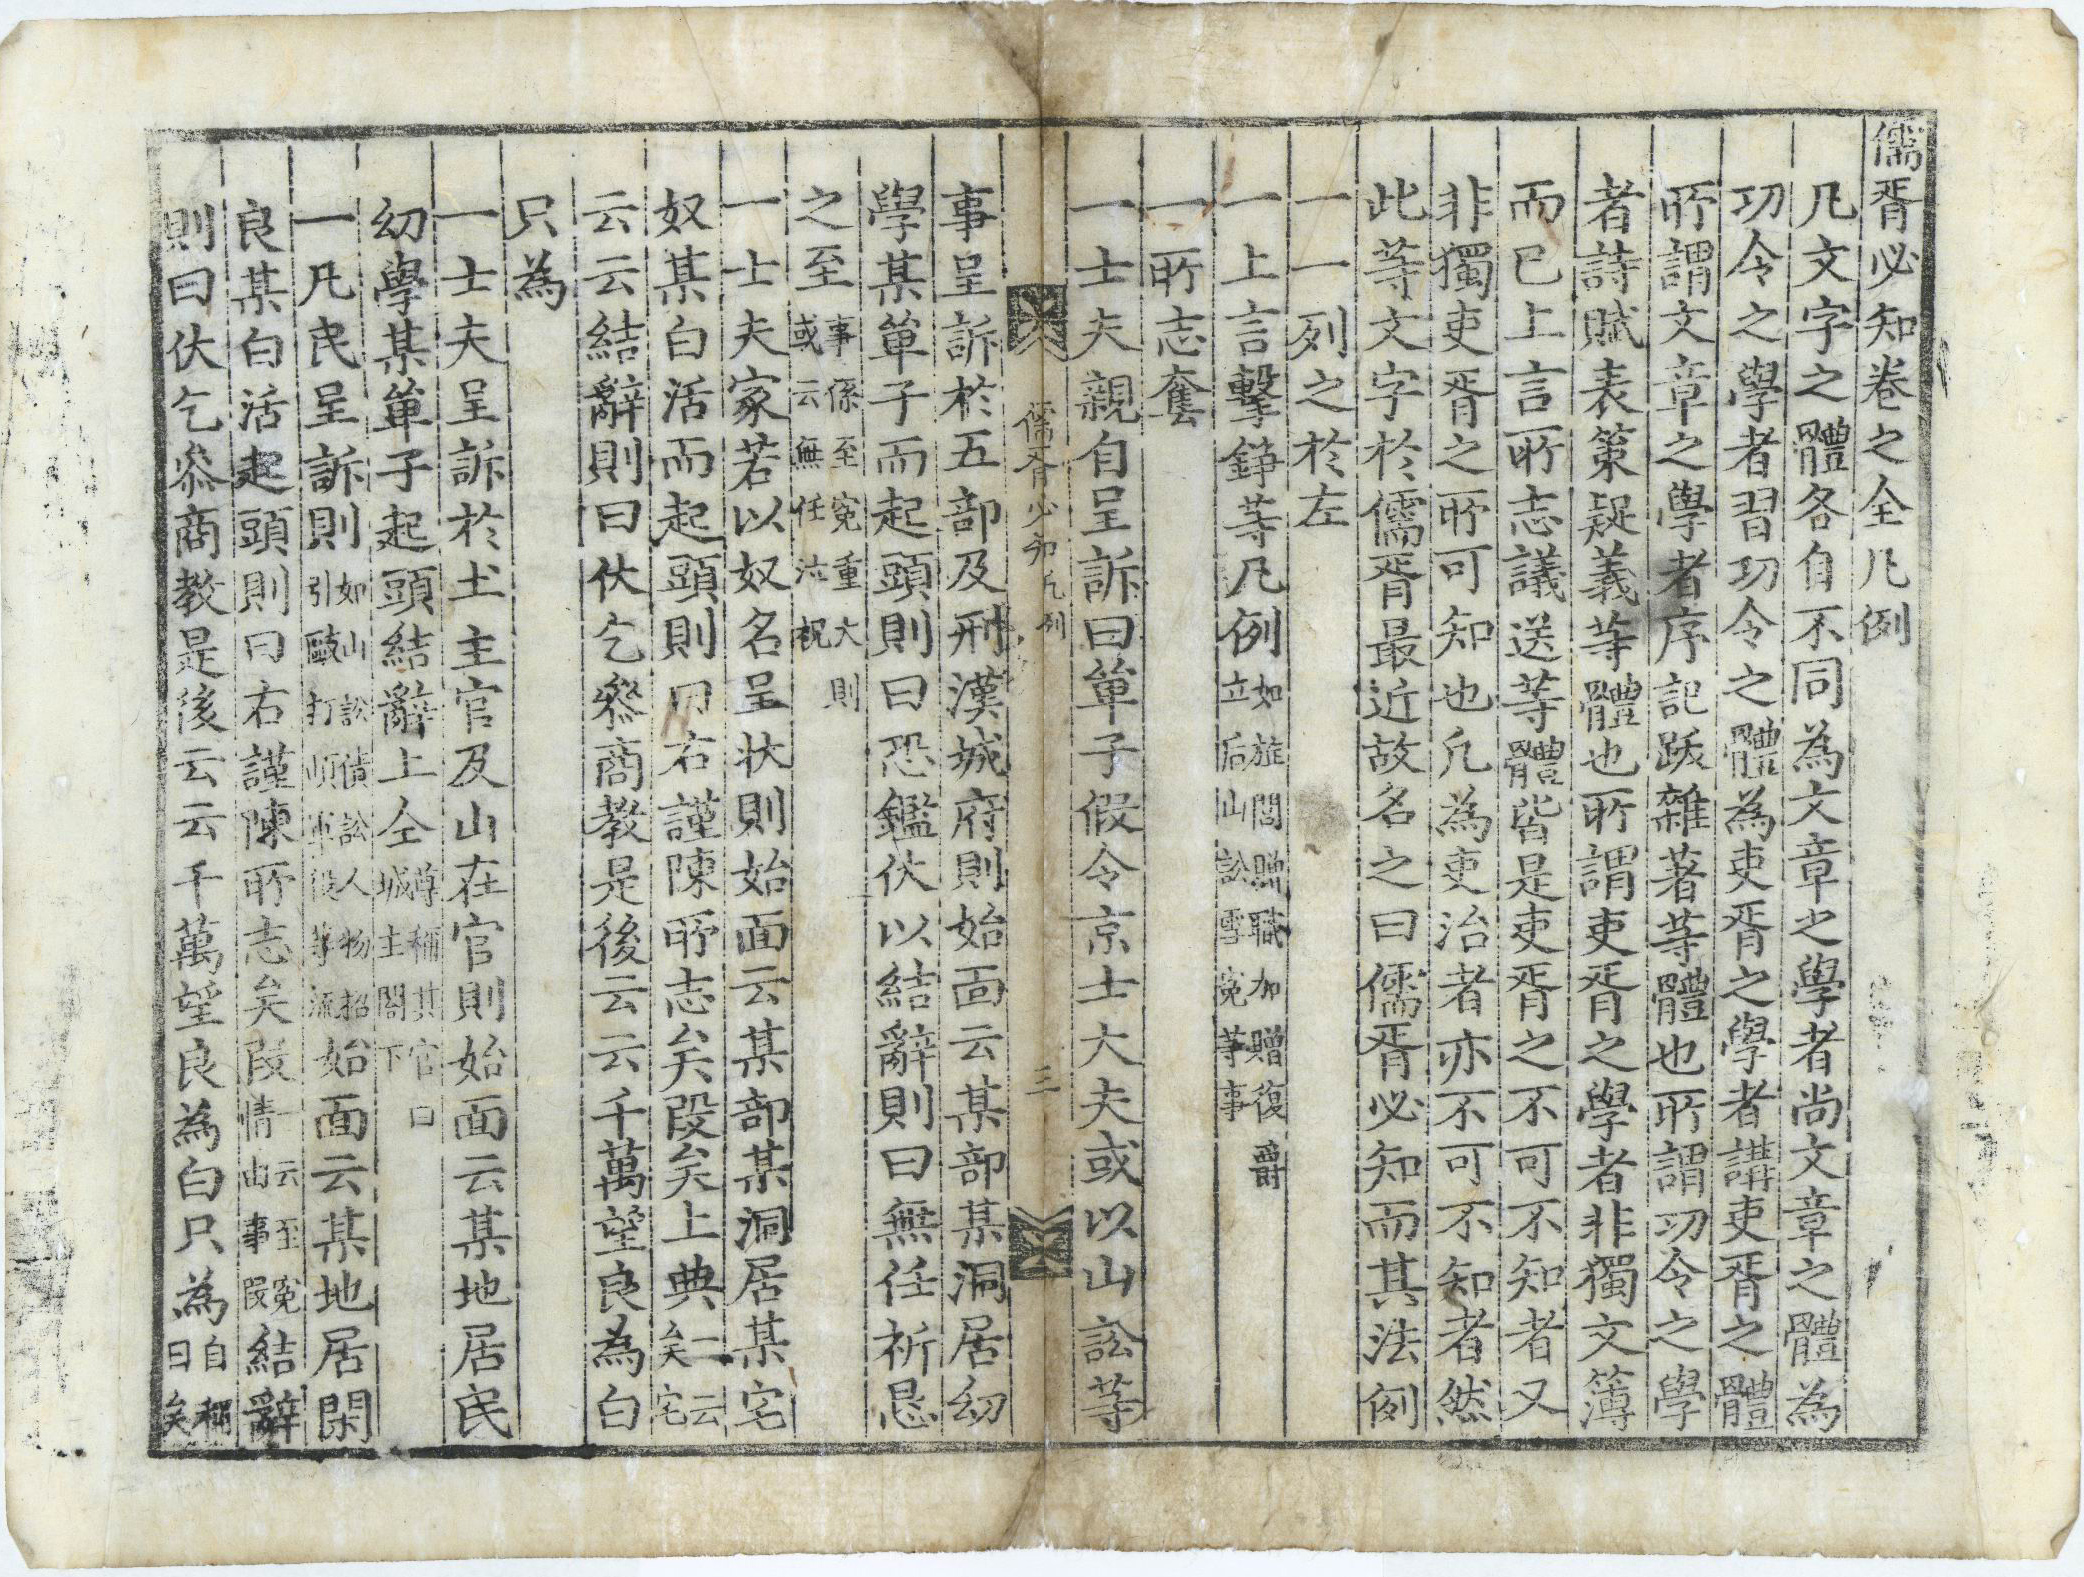 儒胥必知卷之全凡例
凡文字之體各自不同為文章之學者尚文章之體為
功令之學者習功令之體為吏胥之學者講吏胥之體
所謂文章之學者序記跋雜著等體也所謂功令之學
者詩賦表策疑義等體也所謂吏胥之學者非獨文簿
而已上言所志議送等體皆是吏胥之不可不知者又
非獨吏胥之所可知也凡為吏治者亦不可不知者然
此等文字於儒胥最近故名之曰儒胥必知而其法例
一一列之於左
一上言擊錚等凡例如旌閭贈職加贈復爵
立后山訟雪冤等事
一所志套
一士夫親自呈訴曰單子假令京士大夫或以山訟等
儒胥必知凡例
三
事呈訴於五部及刑漢城府則始面云某部某洞居幼
學某單子而起頭則曰恐鑑伏以結辭則曰無任祈恳
之至事係至冤重大則
或云無任泣祝
一士夫家若以奴名呈狀則始面云某部某洞居某宅
奴某白活而起頭則曰右謹陳所志矣段矣上典一云
矣宅
云云結辭則曰伏乞叅商教是後云云千萬望良為白
只為
一士夫呈訴於土主官及山在官則始面云某地居民
幼學某單子起頭結辭上仝尊稱其官曰
城主閤下
一凡民呈訴則如山訟債訟人物招
引毆打頉軍役等流
始面云某地居閑
良某白活起頭則曰右謹陳所志矣段情由事段
云至冤
結辭
則曰伏乞叅商教是後云云千萬望良為白只為自稱
曰矣